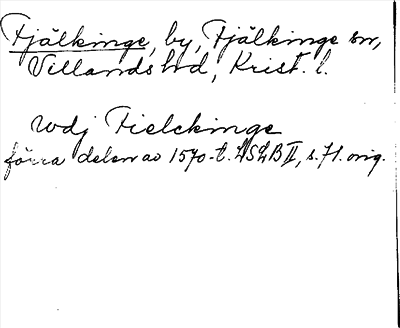 Fjälkinge, by, Fjälkinge sn,
Villands hd, Krist. l.
udj Fielckinge
förra delen av 1570-t. LSLB II, s. 71. orig.